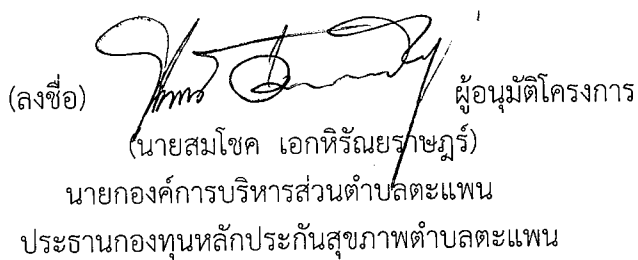 (ลงชื่อ) ผู้อนุมัติโครงการ
(นายสมโชค เอกหิรัณยราษฎร์)
นายกองค์การบริหารส่วนตำบลตะแพน
ประธานกองทุนหลักประกันสุขภาพตำบลตะแพน